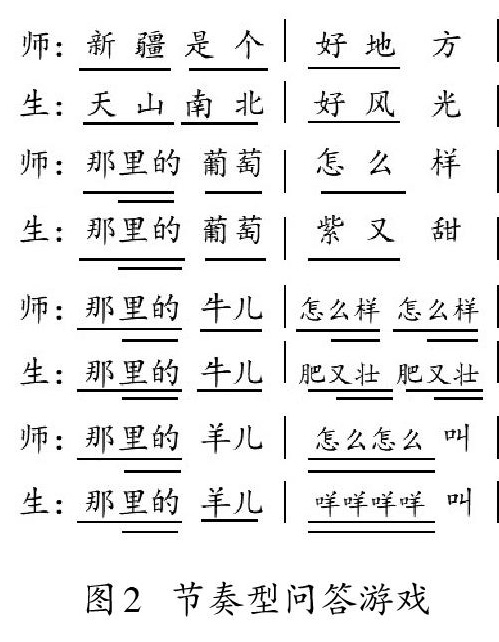 师：新疆是个 | 好地方 |
生：天山南北 | 好风光 |
师：那里的葡萄 | 怎么样 |
生：那里的葡萄 | 紫又甜 |
师：那里的牛儿 | 怎么样怎么样 |
生：那里的牛儿 | 肥又壮肥又壮 |
师：那里的羊儿 | 怎么怎么叫 |
生：那里的羊儿 | 咩咩咩咩叫 |
图2 节奏型问答游戏